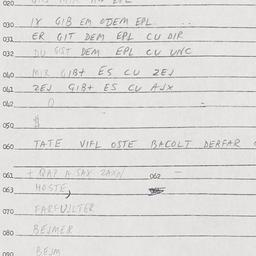 020
030 IX GIB EM OJEM EPL
031 ER GIT DEM EPL CU DIR
032 DU GIST DEM EPL CU UNC
040 MIR GIBT ES CU ZEJ
041 ZEJ GIBT ES CU AJX
042
050 $
060 TATE VIFL OSTE BACOLT DERFAR
061 062
063 HOSTE,
070 FARFUJLTER
080 BEJMER
090 BEJM